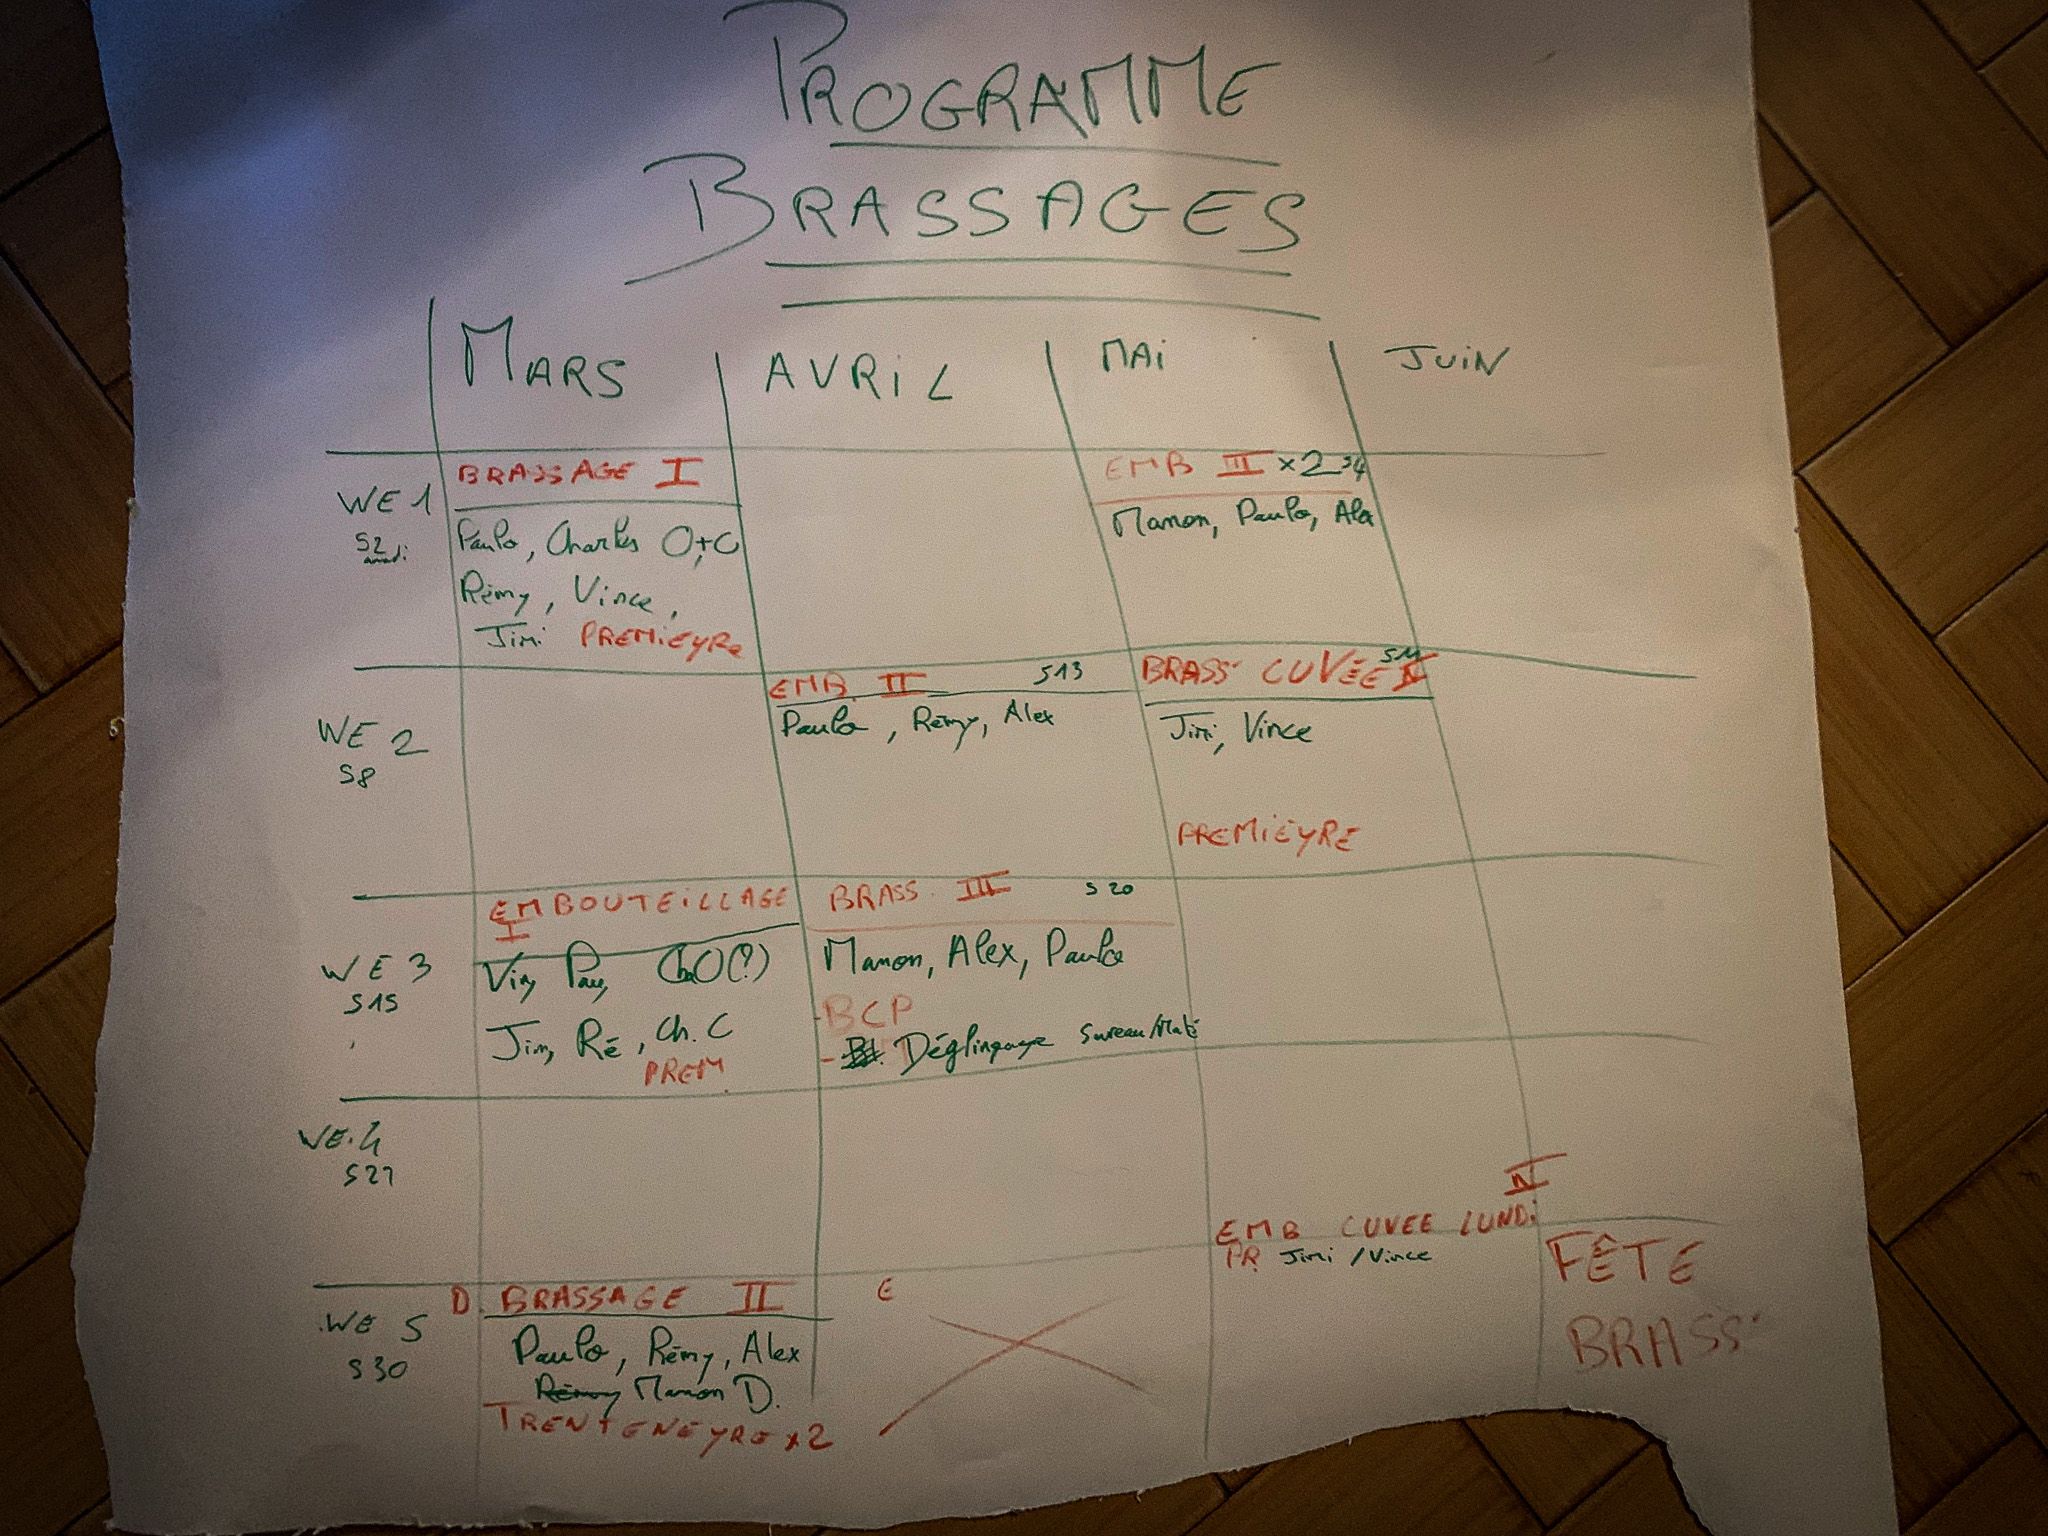 PROGRAMME
BRASSAGES
MARS AVRIL MAI JUIN
WE 1
S2
BRASSAGE I
Paulo, Charles O+C
Rémy, Vince,
Jimi PREMiEYRE
EMB III x2 S4
Manon, Paulo, Alex
WE 2
S8
EMB. II S13
Paulo, Rémy, Alex
BRASS° CUVÉE IV S11
Jimi, Vince
PREMiEYRE
WE 3
S15
EMBOUTEiLLAGE
I
Vin, Pau, Ch O(?)
Jim, Ré, Ch. C
PREM.
BRASS. III S 20
Manon, Alex, Paulo
- BCP
- Déglinguage Sureau/Maté
WE.4
IV
EMB CUVEE LUNDi
PR. Jimi / Vince
WE 5
S30
D. BRASSAGE II
Paulo, Rémy, Alex
Rémy Manon D.
TRENTENEYRE x2
E
FÊTE
BRASS°